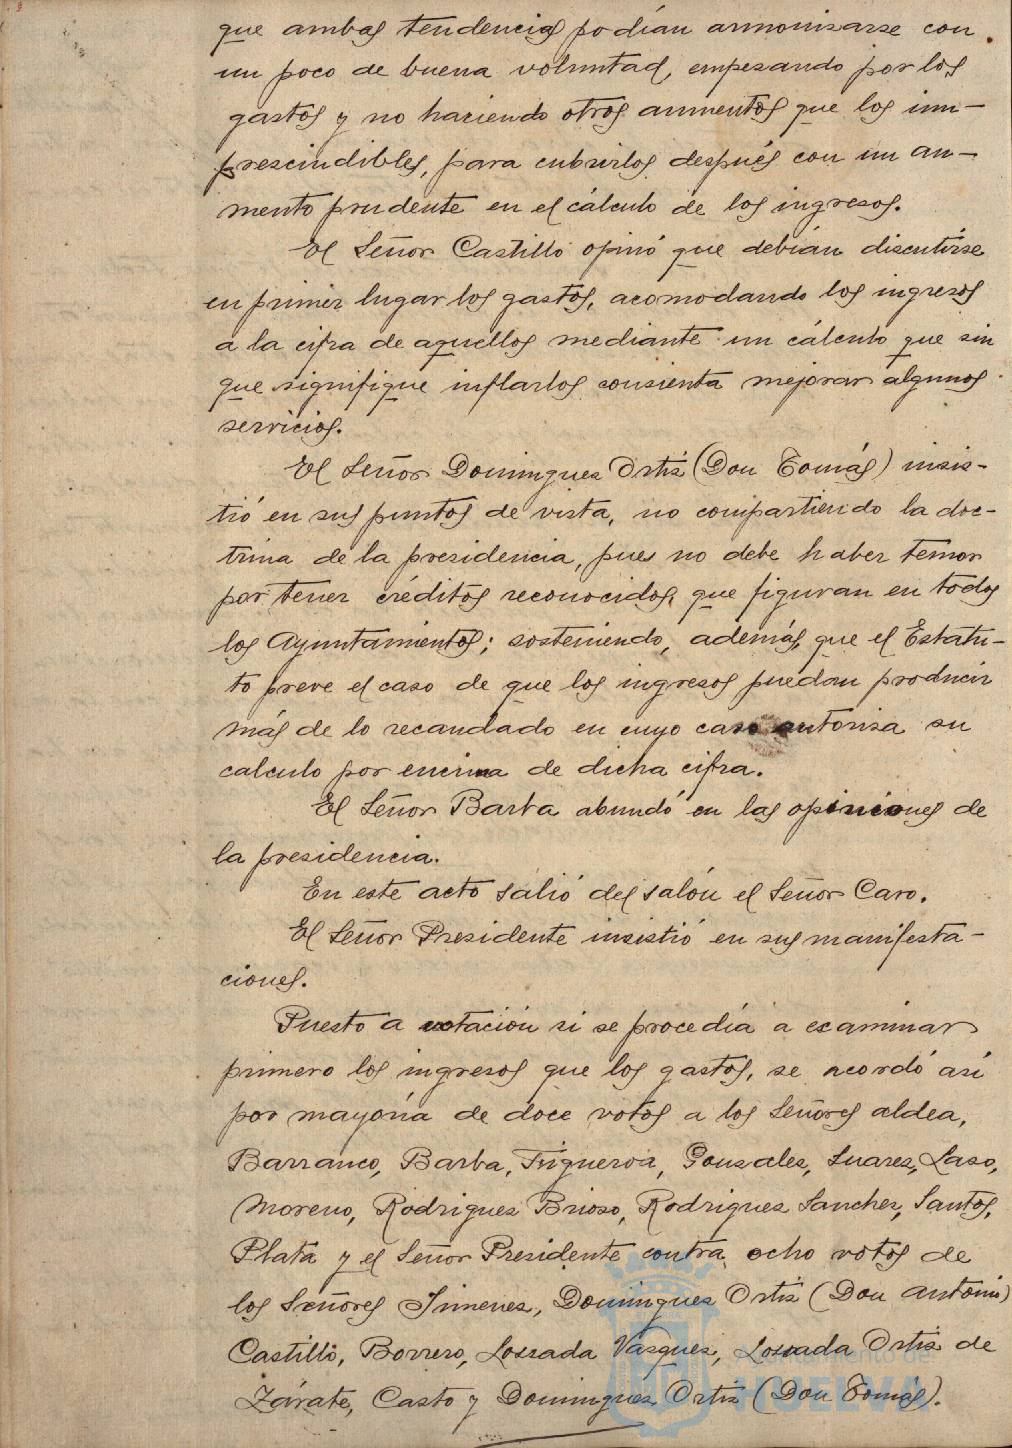 que ambas tendencias podían armonizarse con
un poco de buena voluntad, empezando por los
gastos y no haciendo otros aumentos que los im-
prescindibles, para cubrirlos después con un au-
mento prudente en el cálculo de los ingresos.
El Señor Castillo opinó que debían discutirse
en primer lugar los gastos, acomodando los ingresos
a la cifra de aquellos mediante un cálculo que sin
que signifique inflarlos consienta mejorar algunos
servicios.
El Señor Dominguez Ortiz (Don Tomás) insis-
tió en sus puntos de vista, no compartiendo la doc-
trina de la presidencia, pues no debe haber temor
por tener créditos reconocidos, que figuran en todos
los Ayuntamientos; sosteniendo, además, que el Estatu-
to preve el caso de que los ingresos puedan producir
más de lo recaudado en cuyo caso autoriza su
calculo por encima de dicha cifra.
El Señor Barba abundó en las opiniones de
la presidencia.
En este acto salió del salón el Señor Caro.
El Señor Presidente insistió en sus manifesta-
ciones.
Puesto a votación si se procedía a examinar
primero los ingresos que los gastos, se acordó así
por mayoría de doce votos a los Señores aldea,
Barranco, Barba, Figueroa, Gonzalez, Suarez, Laso,
Moreno, Rodriguez Brioso, Rodriguez Sanchez, Santos,
Plata y el Señor Presidente contra ocho votos de
los Señores Jimenez, Dominguez Ortiz (Don Antonio)
Castillo, Borrero, Lozada Vazquez, Lozada Ortiz de
Zárate, Casto y Dominguez Ortiz (Don Tomás).
Ayuntamiento de
HUELVA